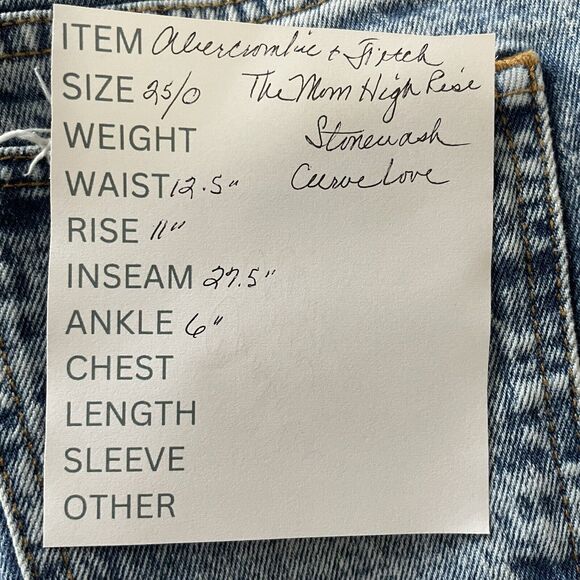 ITEM Abercrombie & Fitch
SIZE 25/0 The Mom High Rise
WEIGHT Stonewash
WAIST 12.5" Curve Love
RISE 11"
INSEAM 27.5"
ANKLE 6"
CHEST
LENGTH
SLEEVE
OTHER